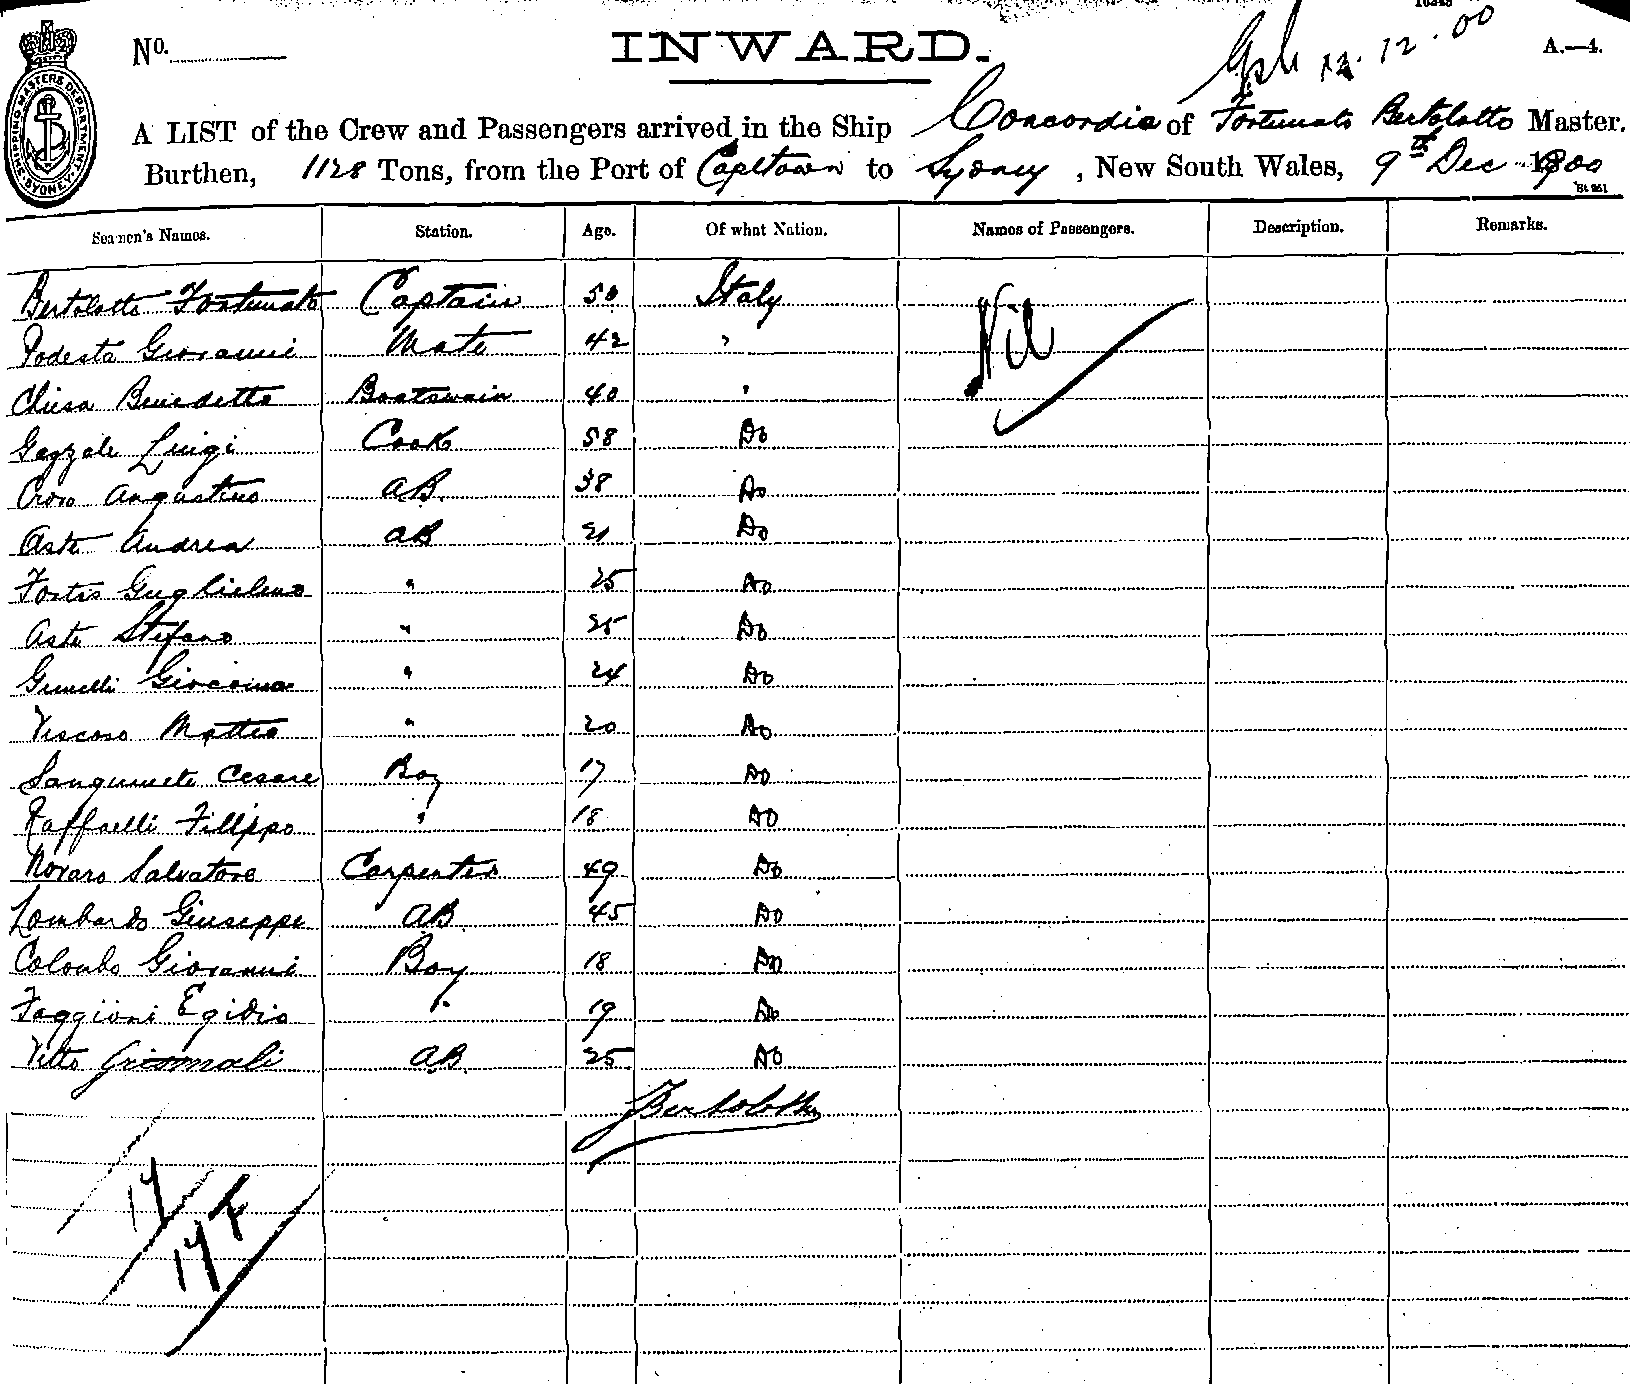 No.
INWARD.
12.12.00
A.—4.
SHIPPING MASTERS DEPARTMENT SYDNEY
A LIST of the Crew and Passengers arrived in the Ship Concordia of Fortunato Bertolotto Master.
Burthen, 1128 Tons, from the Port of Capetown to Sydney, New South Wales, 9th Dec 1900
Seamen's Names. Station. Age. Of what Nation. Names of Passengers. Description. Remarks.
Bertolotto Fortunato Captain 50 Italy Nil
Podesta Giovanni Mate 42 "
Chiesa Benedetto Boatswain 40 "
Gazzale Luigi Cook 58 Do
Angustino AB. 38 Do
Aste Andrea AB 21 Do
Fortis Guglielmo " 25 Do
Aste Stefano " 25 Do
Gemelli Giacomo " 24 Do
Viscoso Matteo " 20 Do
Sanguineti Cesare Boy 17 Do
Raffaelli Filippo " 18 Do
Novaro Salvatore Carpenter 49 Do
Lombardo Giuseppe AB 45 Do
Colombo Giovanni Boy 18 Do
Faggioni Egidio " 19 Do
Vitto Grimmali AB. 25 Do
FBertolotto
17
17 F